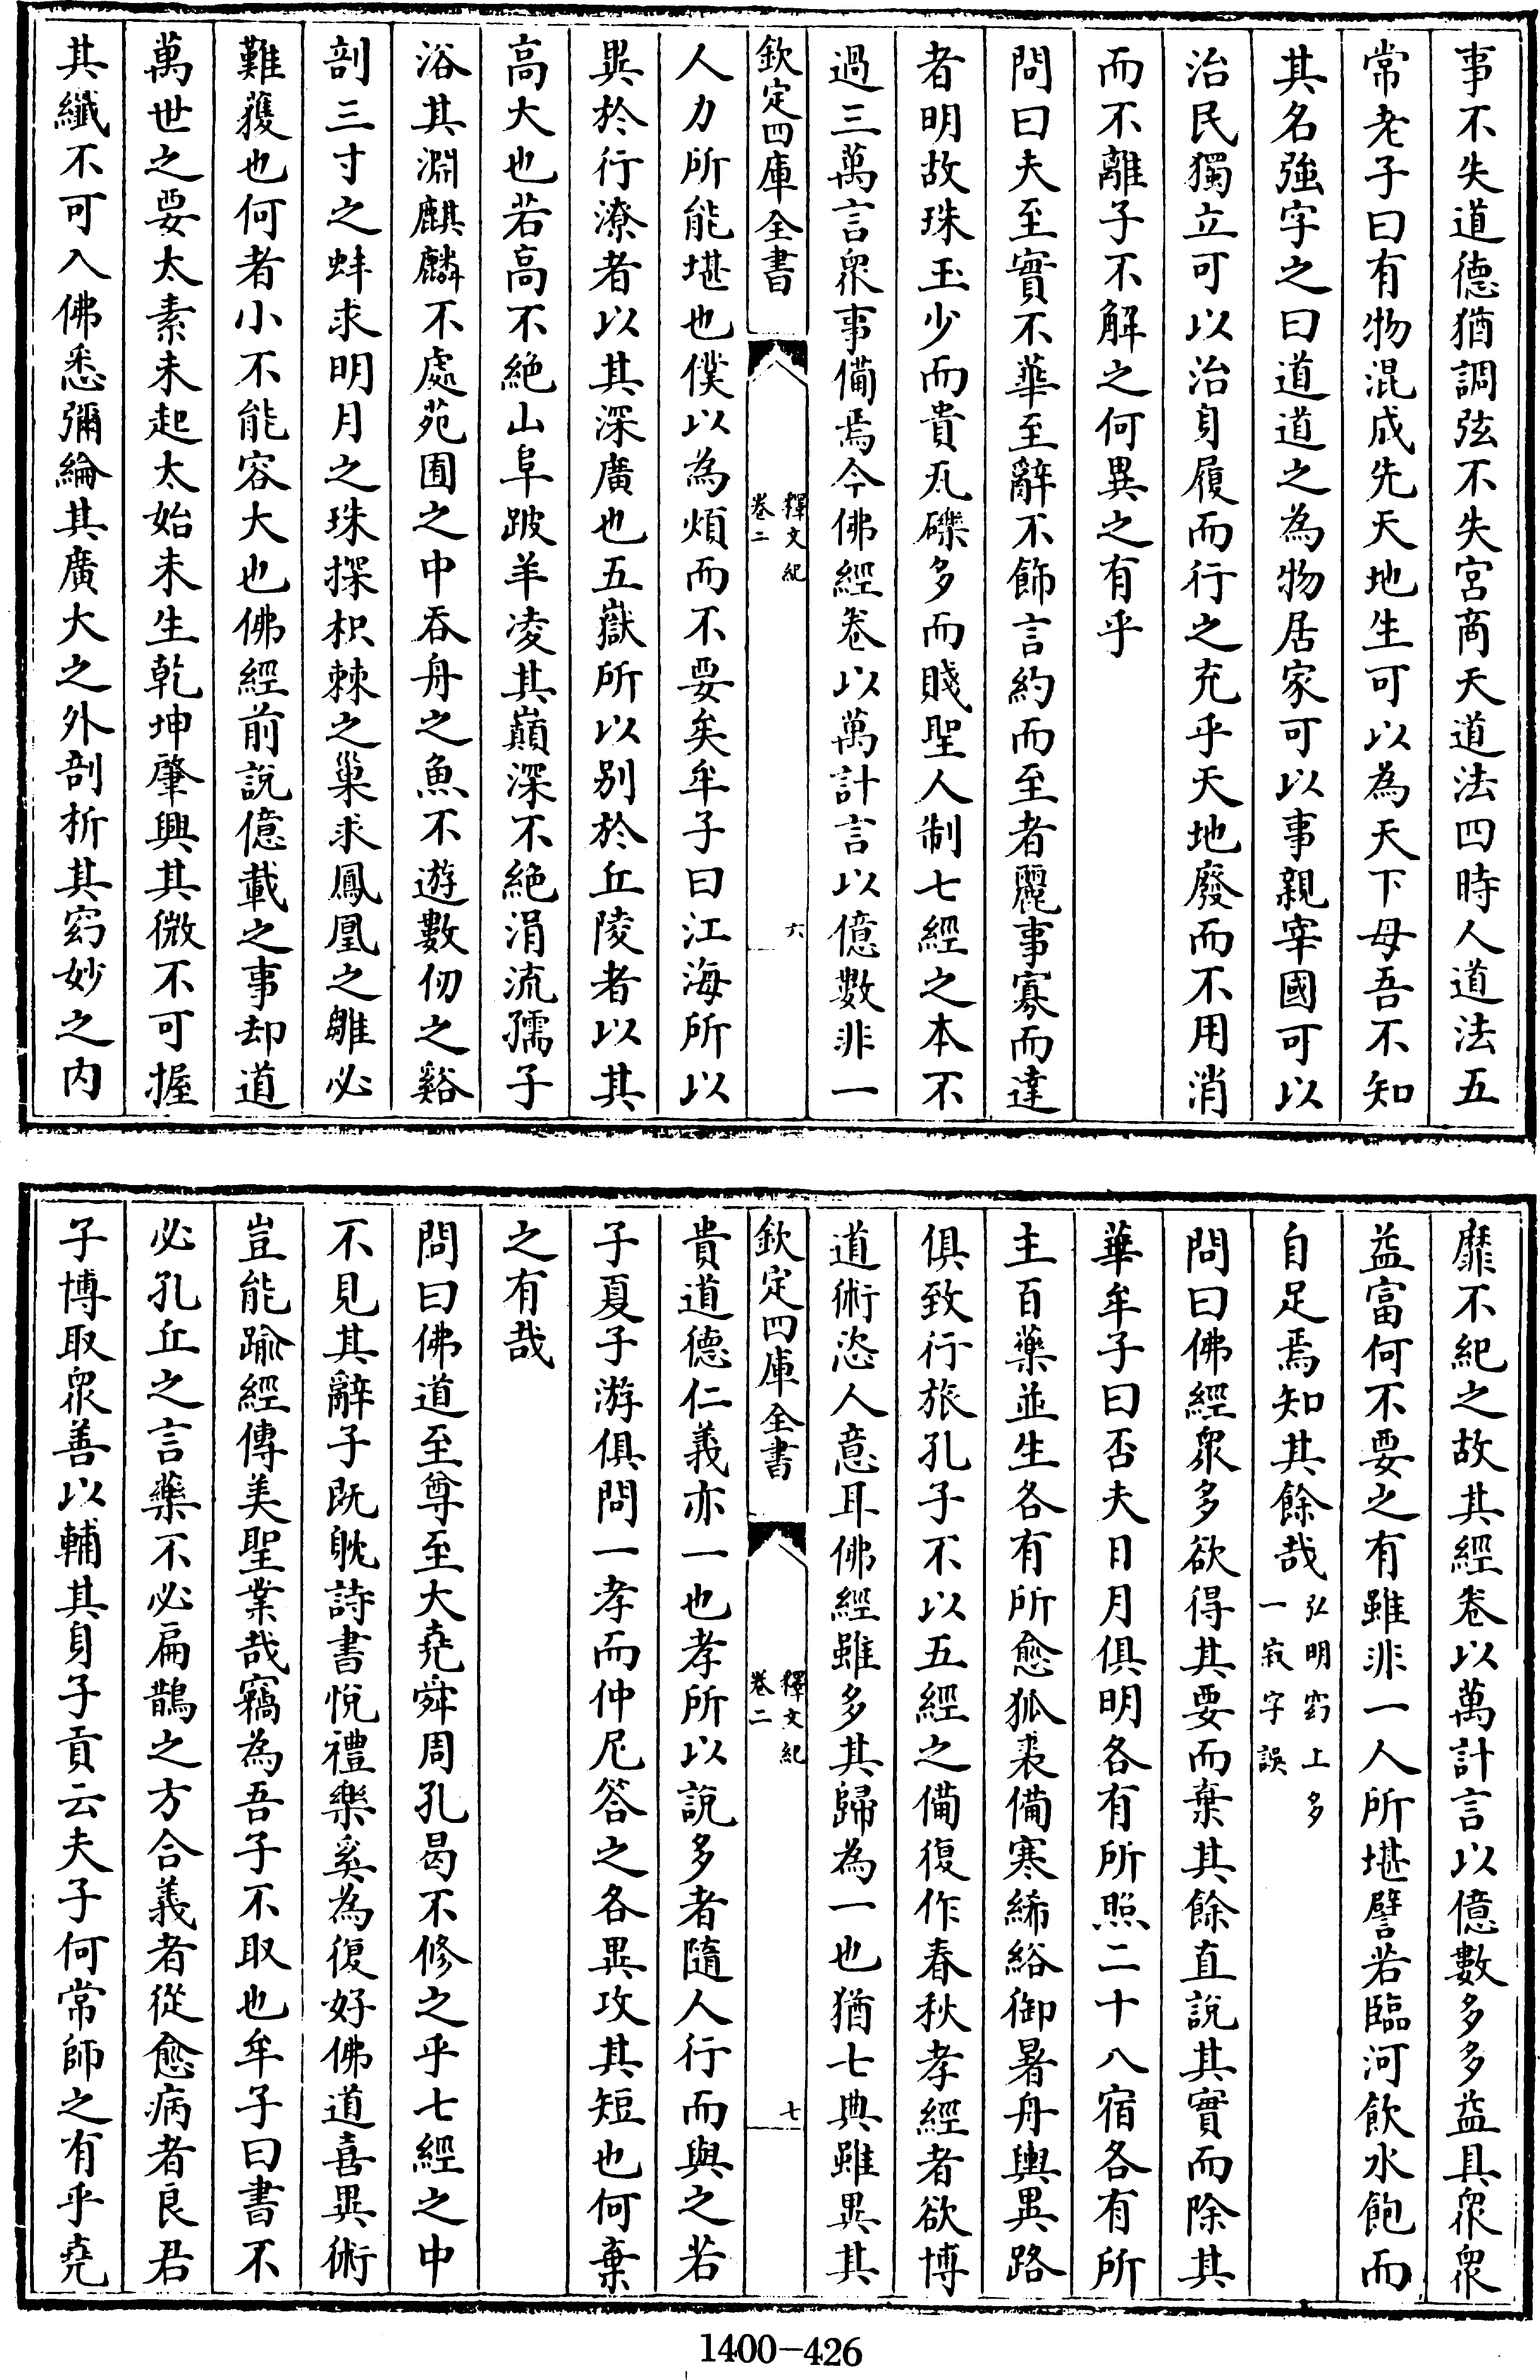 事不失道德猶調弦不失宮商天道法四時人道法五
常老子曰有物混成先天地生可以為天下母吾不知
其名強字之曰道道之為物居家可以事親宰國可以
治民獨立可以治身履而行之充乎天地廢而不用消
而不離子不解之何異之有乎
問曰夫至實不華至辭不飾言約而至者麗事寡而達
者明故珠玉少而貴瓦礫多而賤聖人制七經之本不
過三萬言衆事備焉今佛經卷以萬計言以億數非一
欽定四庫全書
釋文紀
卷二
六
人力所能堪也僕以為煩而不要矣牟子曰江海所以
異於行潦者以其深廣也五嶽所以别於丘陵者以其
高大也若高不絶山阜跛羊凌其巔深不絶涓流孺子
浴其淵麒麟不處苑囿之中吞舟之魚不遊數仞之谿
剖三寸之蚌求明月之珠探枳棘之巢求鳳凰之雛必
難獲也何者小不能容大也佛經前說億載之事却道
萬世之要太素未起太始未生乾坤肇興其微不可握
其纖不可入佛悉彌綸其廣大之外剖析其窈妙之内
靡不紀之故其經卷以萬計言以億數多多益具衆衆
益富何不要之有雖非一人所堪譬若臨河飲水飽而
自足焉知其餘哉弘明窈上多
一寂字誤
問曰佛經衆多欲得其要而棄其餘直說其實而除其
華牟子曰否夫日月俱明各有所照二十八宿各有所
主百藥並生各有所愈狐裘備寒絺綌御暑舟輿異路
俱致行旅孔子不以五經之備復作春秋孝經者欲博
道術恣人意耳佛經雖多其歸為一也猶七典雖異其
欽定四庫全書
釋文紀
卷二
七
貴道德仁義亦一也孝所以說多者隨人行而與之若
子夏子游俱問一孝而仲尼答之各異攻其短也何棄
之有哉
問曰佛道至尊至大堯舜周孔曷不修之乎七經之中
不見其辭子既耽詩書悅禮樂奚為復好佛道喜異術
豈能踰經傳美聖業哉竊為吾子不取也牟子曰書不
必孔丘之言藥不必扁鵲之方合義者從愈病者良君
子博取衆善以輔其身子貢云夫子何常師之有乎堯
1400-426